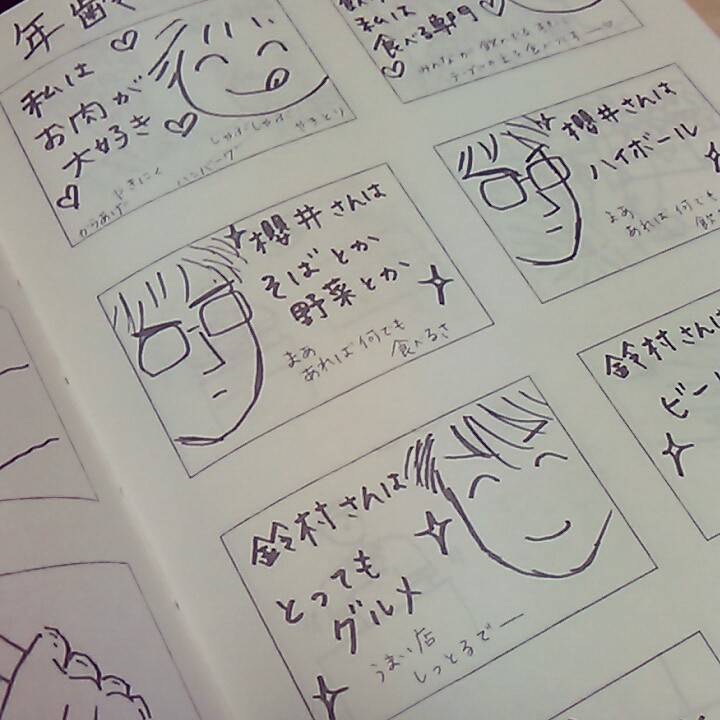 年歯
私は
お肉が
大好き♡
しゃぶしゃぶ
やきとり
ハンバーグ
やきにく
からあげ
櫻井さんは
そばとか
野菜とか
まあ
あれば何でも
食べるさ
鈴村さんは
とっても
グルメ
うまい店
しっとるでー
私は
食べる専門♡
みんなが
櫻井さんは
ハイボール
まあ
あれば何でも
飲
鈴村さんは
ビー